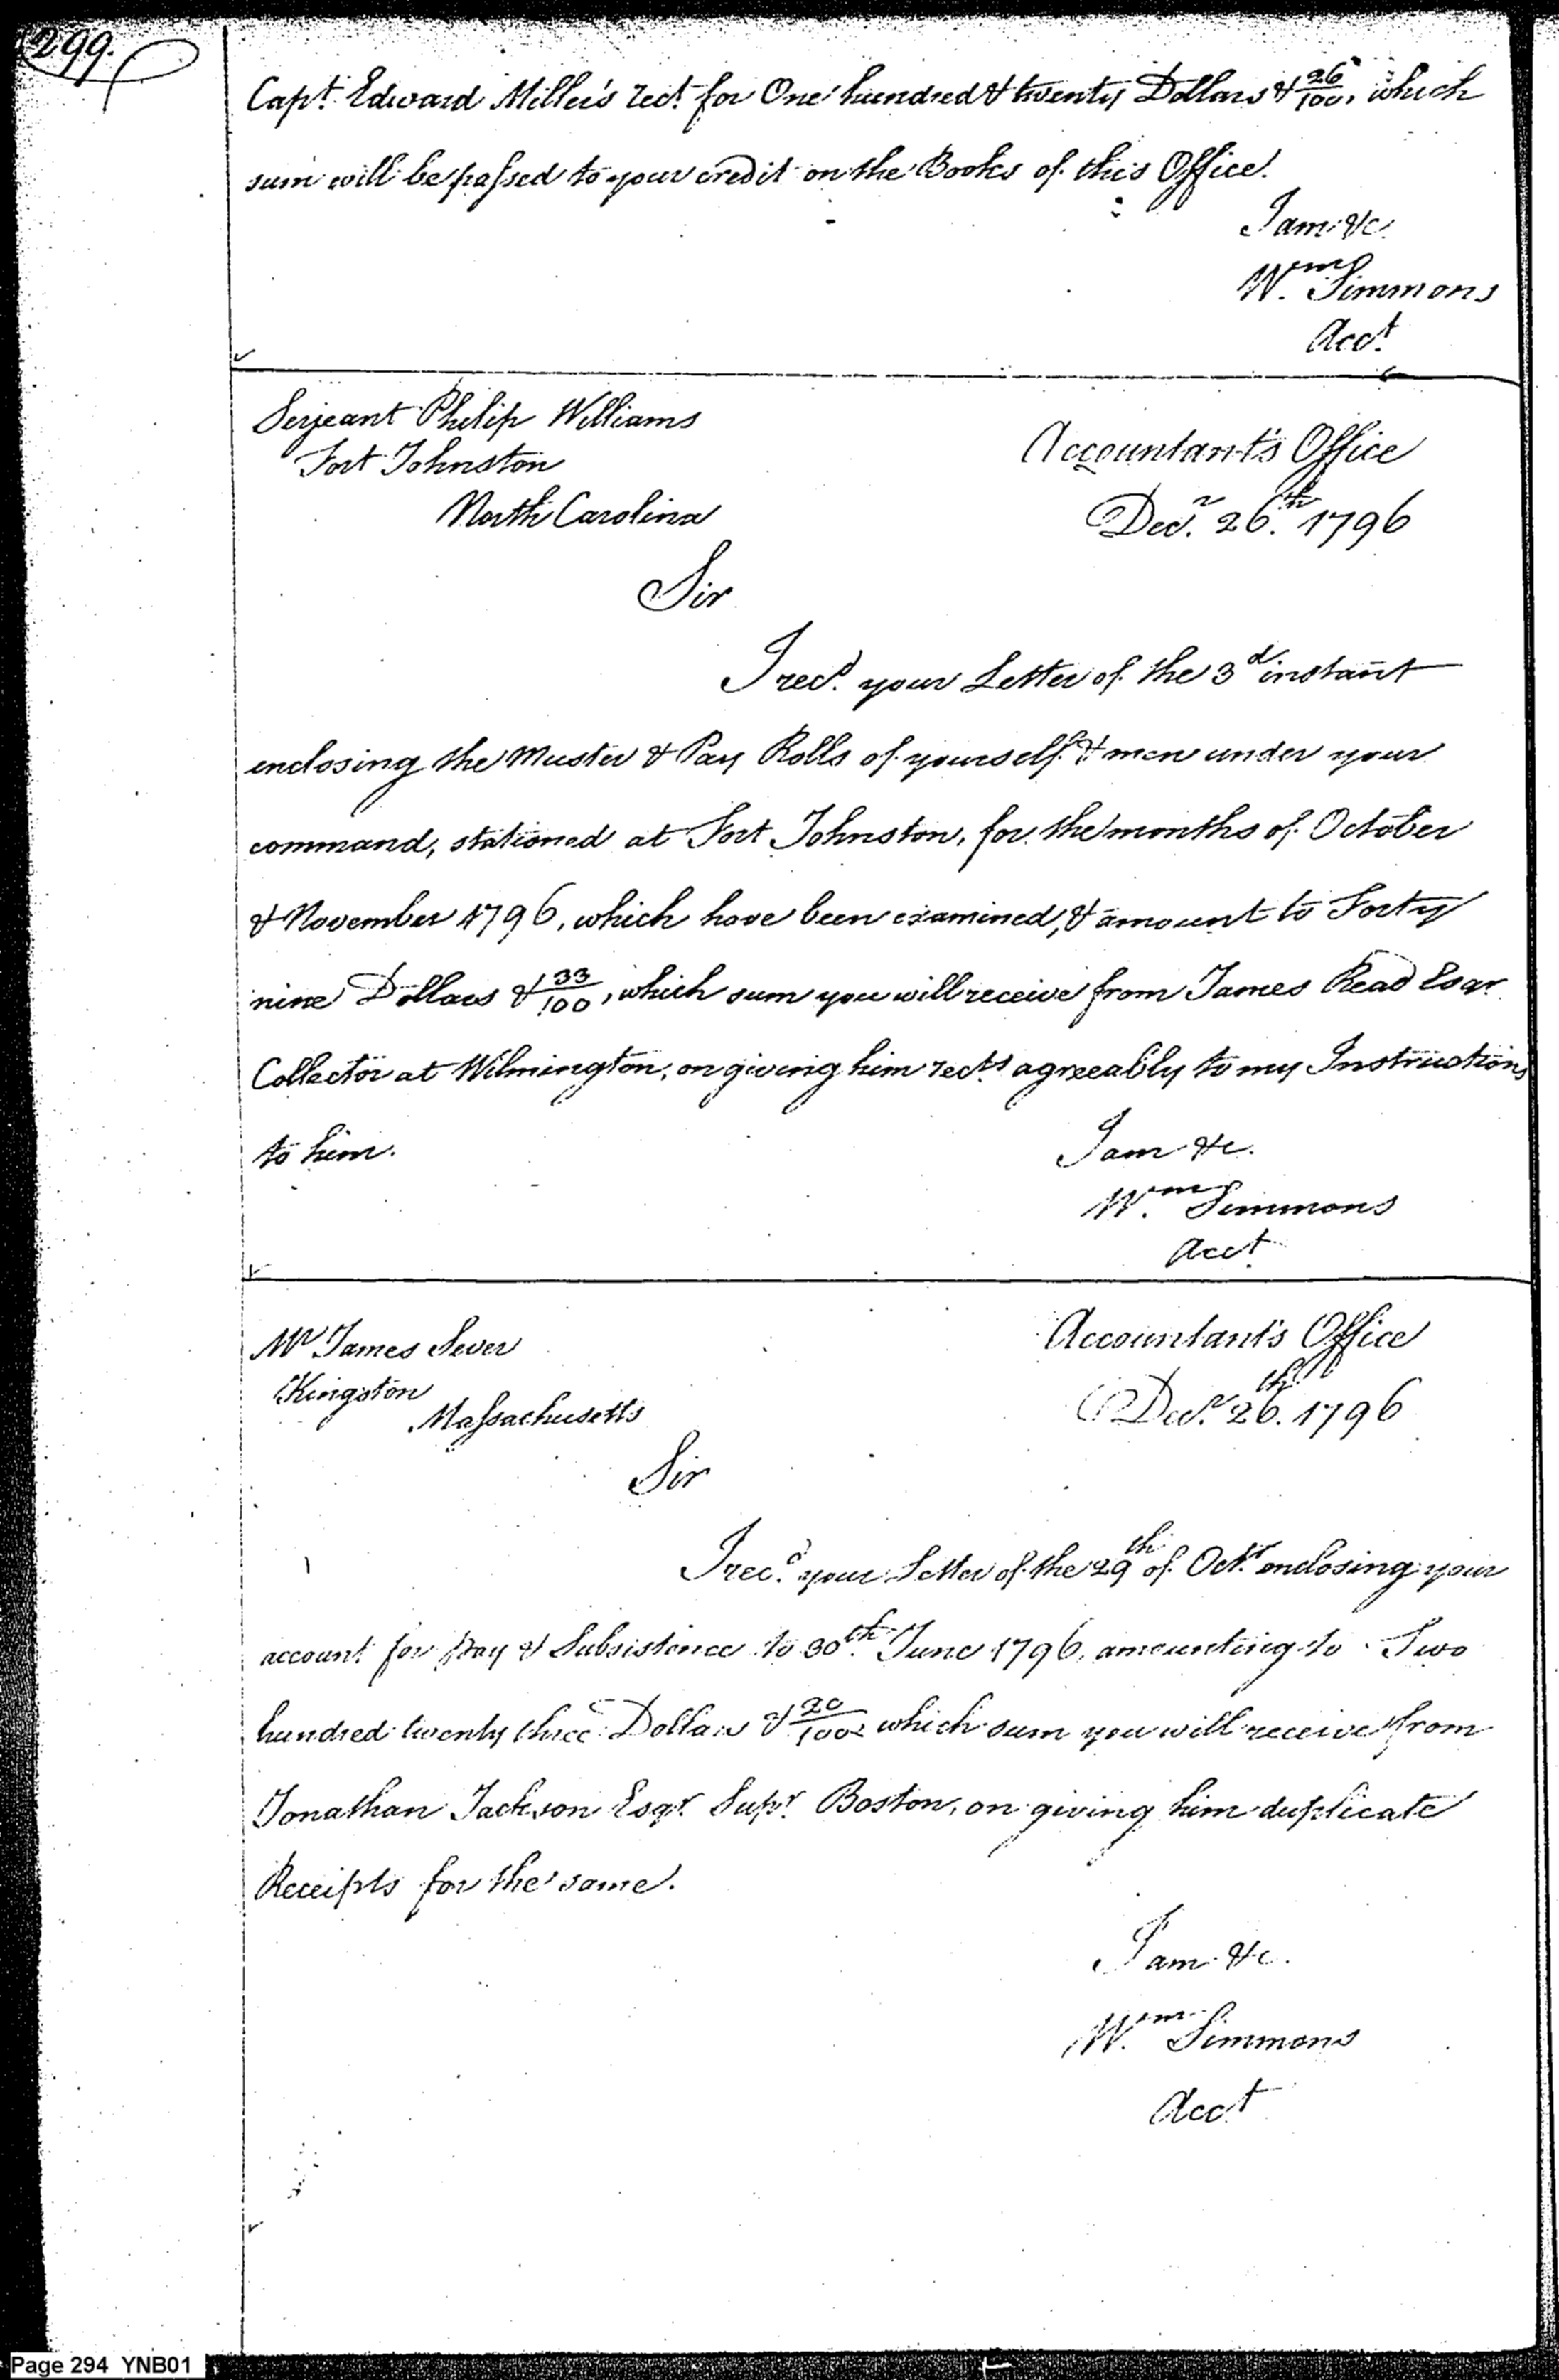 299.
Capt. Edward Miller's rect. for One hundred & twenty Dollars & 26/100, which
sum will be passed to your credit on the Books of this Office.
I am &c.
Wm. Simmons
Acct.
Serjeant Philip Williams
Fort Johnston
North Carolina
Accountant's Office
Decr. 26th. 1796
Sir
I recd. your Letter of the 3d instant
enclosing the Muster & Pay Rolls of yourself & men under your
command, stationed at Fort Johnston, for the months of October
& November 1796, which have been examined, & amount to Forty
nine Dollars & 33/100, which sum you will receive from James Read Esqr
Collector at Wilmington, on giving him rects. agreeably to my Instructions
to him.
I am &c.
Wm. Simmons
Acct.
Mr James Sever
Kingston
Massachusetts
Accountant's Office
Decr. 26th. 1796
Sir
I recd. your Letter of the 29th of Octr. enclosing your
account for Pay & Subsistence to 30th. June 1796, amounting to Two
hundred twenty three Dollars & 20/100 which sum you will receive from
Jonathan Jackson Esqr. Supr. Boston, on giving him duplicate
Receipts for the same.
I am &c.
Wm. Simmons
Acct
Page 294 YNB01